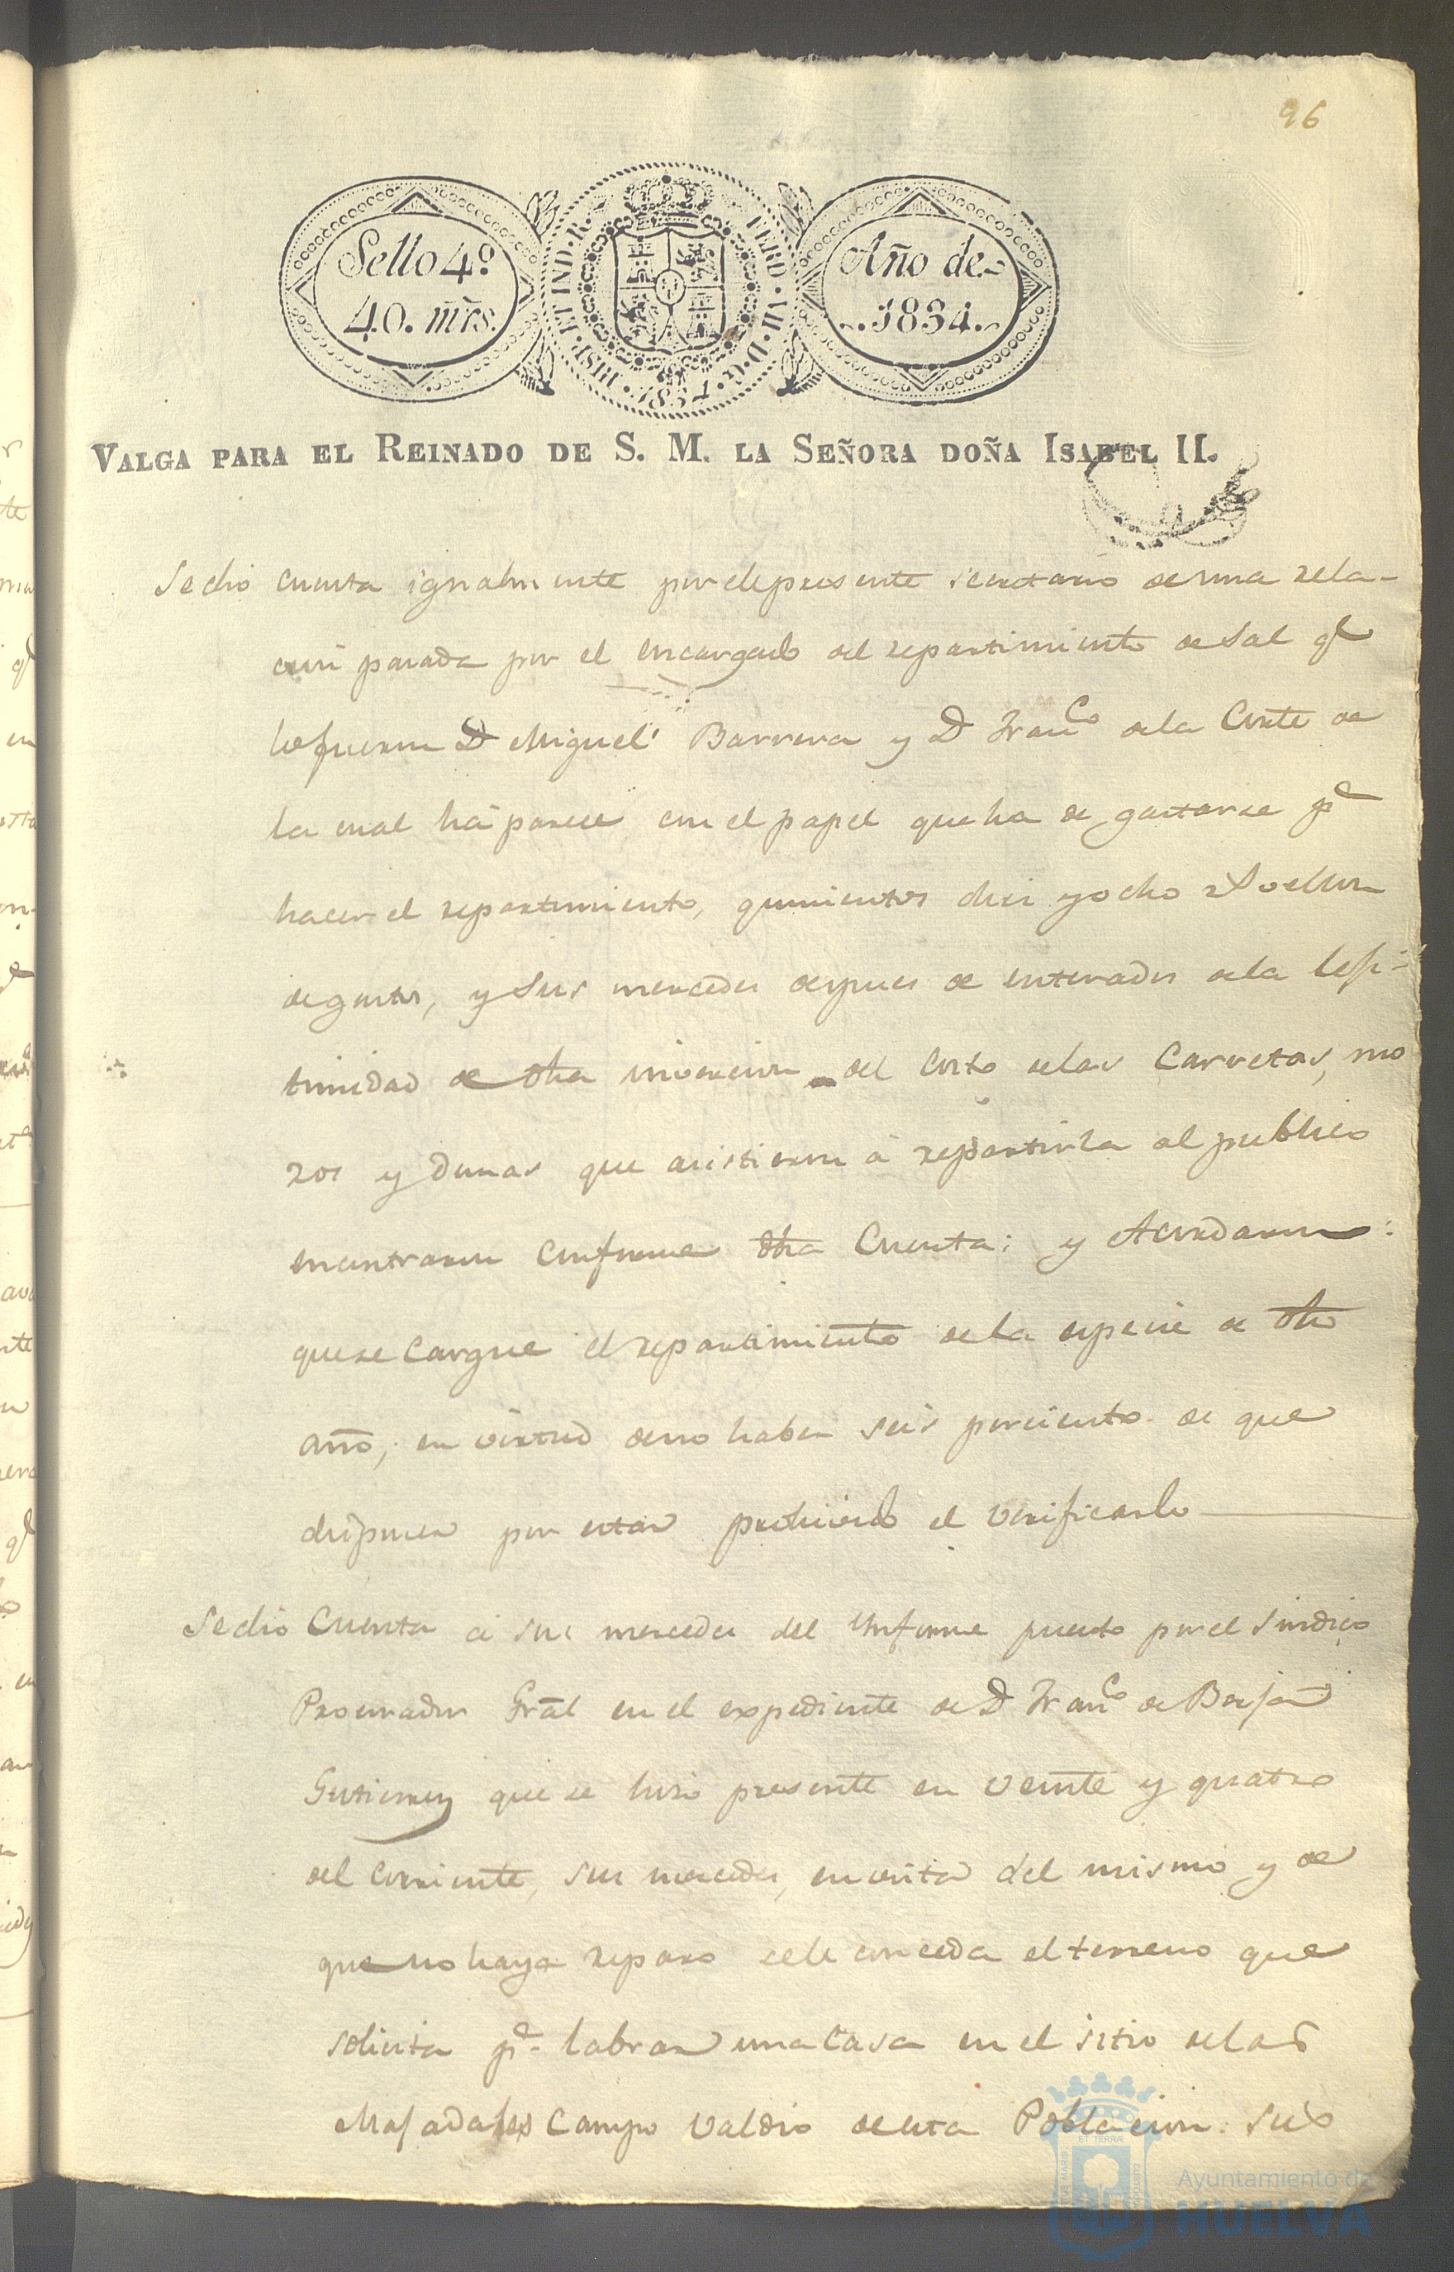 96
Sello 4º
40. mr̃s.
HISP. ET IND. R.
FERD. VII. D. G.
1834
Año de
1834.
VALGA PARA EL REINADO DE S. M. LA SEÑORA DOÑA ISABEL II.
Se dio cuenta igualmente por el presente secretario de una rela-
cion pasada por el encargado del repartimiento de Sal qe
lo fueron Dn Miguel Barrera y Dn Franco de la Corte de
la cual há parece con el papel que ha de gastarse pa
hacer el repartimiento, quinientos dies y ocho rs vellon
de gastos, y Sus mercedes despues de enterados de la lefi-
timidad de dha inversion del costo de las Carretas, mo
zos y demas que asistieron á repartirla al publico
encontraron conforme dha Cuenta; y Acordaron:
que se Cargue el repartimiento de la especie de dho
año, en virtud de no haber seis por ciento de que
disponer por estar prohivido el verificarlo
Se dio Cuenta á sus mercedes del Ynforme puesto por el Sindico
Procurador Gral en el expediente de Dn Franco de Borja
Gutierrez que se hiso presente en veinte y quatro
del corriente, sus mercedes, en vista del mismo y de
que no haya reparo se le conceda el terreno que
solicita pa labrar una Casa en el sitio de las
Campo Valdio de esta Poblacion: sus
Ayuntamiento de
HUELVA